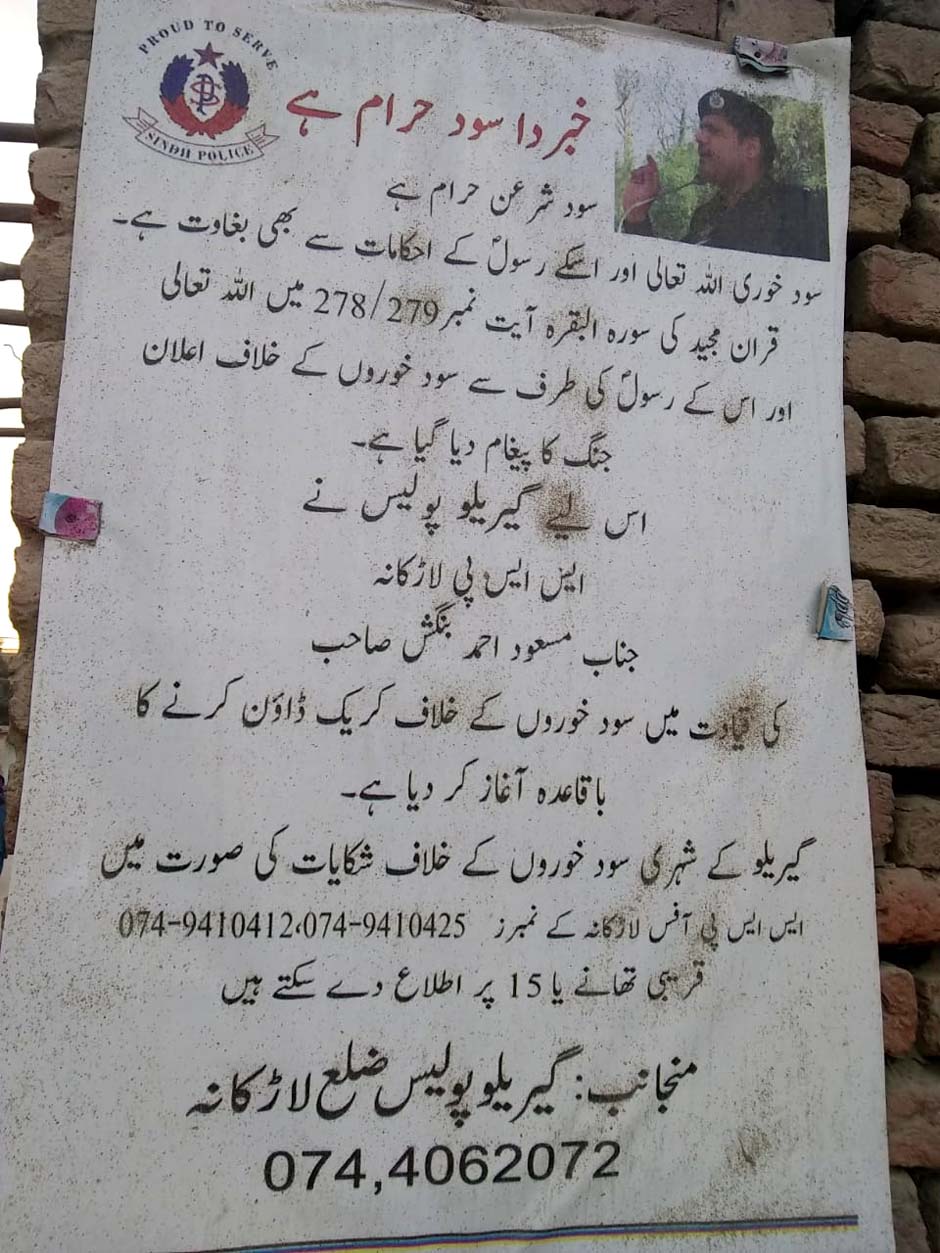 PROUD TO SERVE
SINDH POLICE
خبردا سود حرام ہے
سود شرعن حرام ہے
سود خوری اللہ تعالی اور اسکے رسولؐ کے احکامات سے بھی بغاوت ہے۔
قران مجید کی سورہ البقرہ آیت نمبر278/279 میں اللہ تعالی
اور اس کے رسولؐ کی طرف سے سود خوروں کے خلاف اعلان
جنگ کا پیغام دیا گیا ہے۔
اس لیے گیریلو پولیس نے
ایس ایس پی لاڑکانہ
جناب مسعود احمد بنگش صاحب
کی قیادت میں سود خوروں کے خلاف کریک ڈاؤن کرنے کا
باقاعدہ آغاز کر دیا ہے۔
گیریلو کے شہری سود خوروں کے خلاف شکایات کی صورت میں
ایس ایس پی آفس لاڑکانہ کے نمبرز 074-9410412،074-9410425
قریبی تھانے یا 15 پر اطلاع دے سکتے ہیں
منجانب: گیریلو پولیس ضلع لاڑکانہ
074,4062072